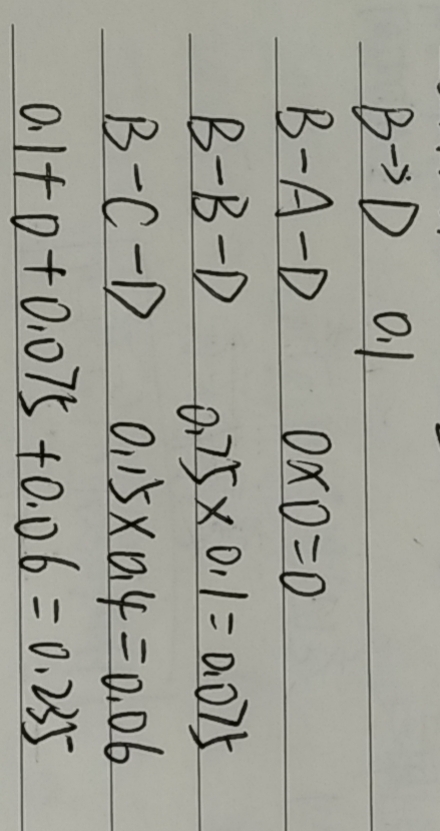 B→D 0.1
B-A-D 0×0=0
B-B-D 0.75×0.1=0.075
B-C-D 0.15×0.4=0.06
0.1+0+0.075+0.06=0.235